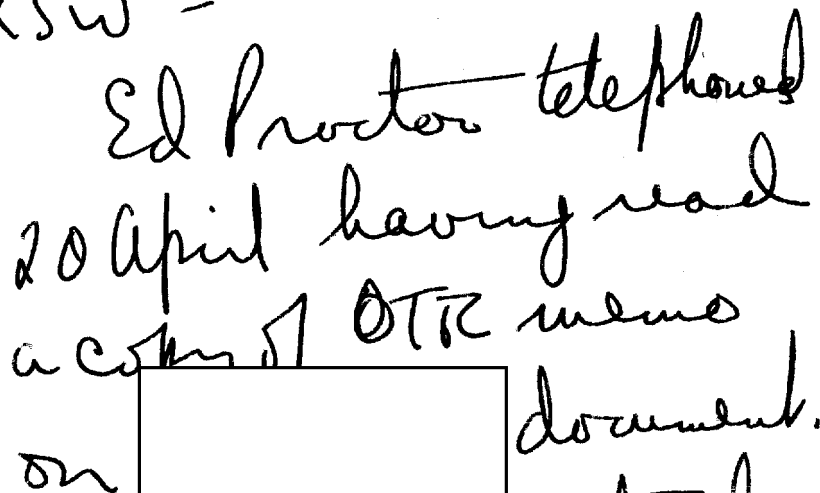 Ed Proctor telephoned
20 April having read
a copy of OTR memo
on document.